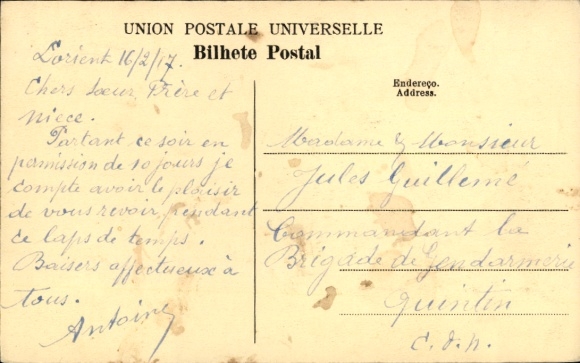 UNION POSTALE UNIVERSELLE
Bilhete Postal
Lorient 16/2/17.
Chers Sœur Frère et
niece.
Partant ce soir en
permission de 10 jours je
compte avoir le plaisir
de vous revoir, pendant
ce laps de temps.
Baisers affectueux à
tous.
Antoine
Endereço.
Address.
Madame & Monsieur
Jules Guillemé
Commandant la
Brigade de Gendarmerie
Quintin
C. d. N.